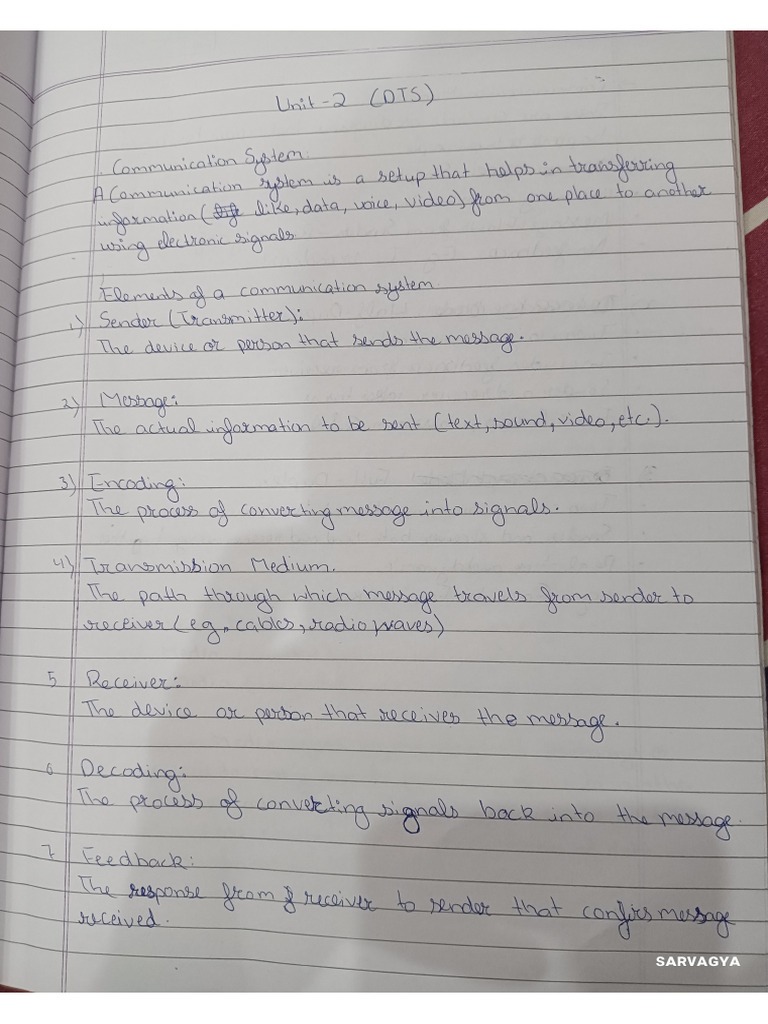 Unit-2 (DTS)
Communication System:
A Communication system is a setup that helps in transferring
information ( like, data, voice, video) from one place to another
using electronic signals
Elements of a communication system
1) Sender (Transmitter):
The device or person that sends the message.
2) Message:
The actual information to be sent (text, sound, video, etc.).
3) Encoding:
The process of converting message into signals.
4) Transmission Medium.
The path through which message travels from sender to
receiver (eg. cables, radio waves)
5 Receiver:
The device or person that receives the message.
6 Decoding:
The process of converting signals back into the message.
7 Feedback:
The response from receiver to sender that confirs message
received.
SARVAGYA